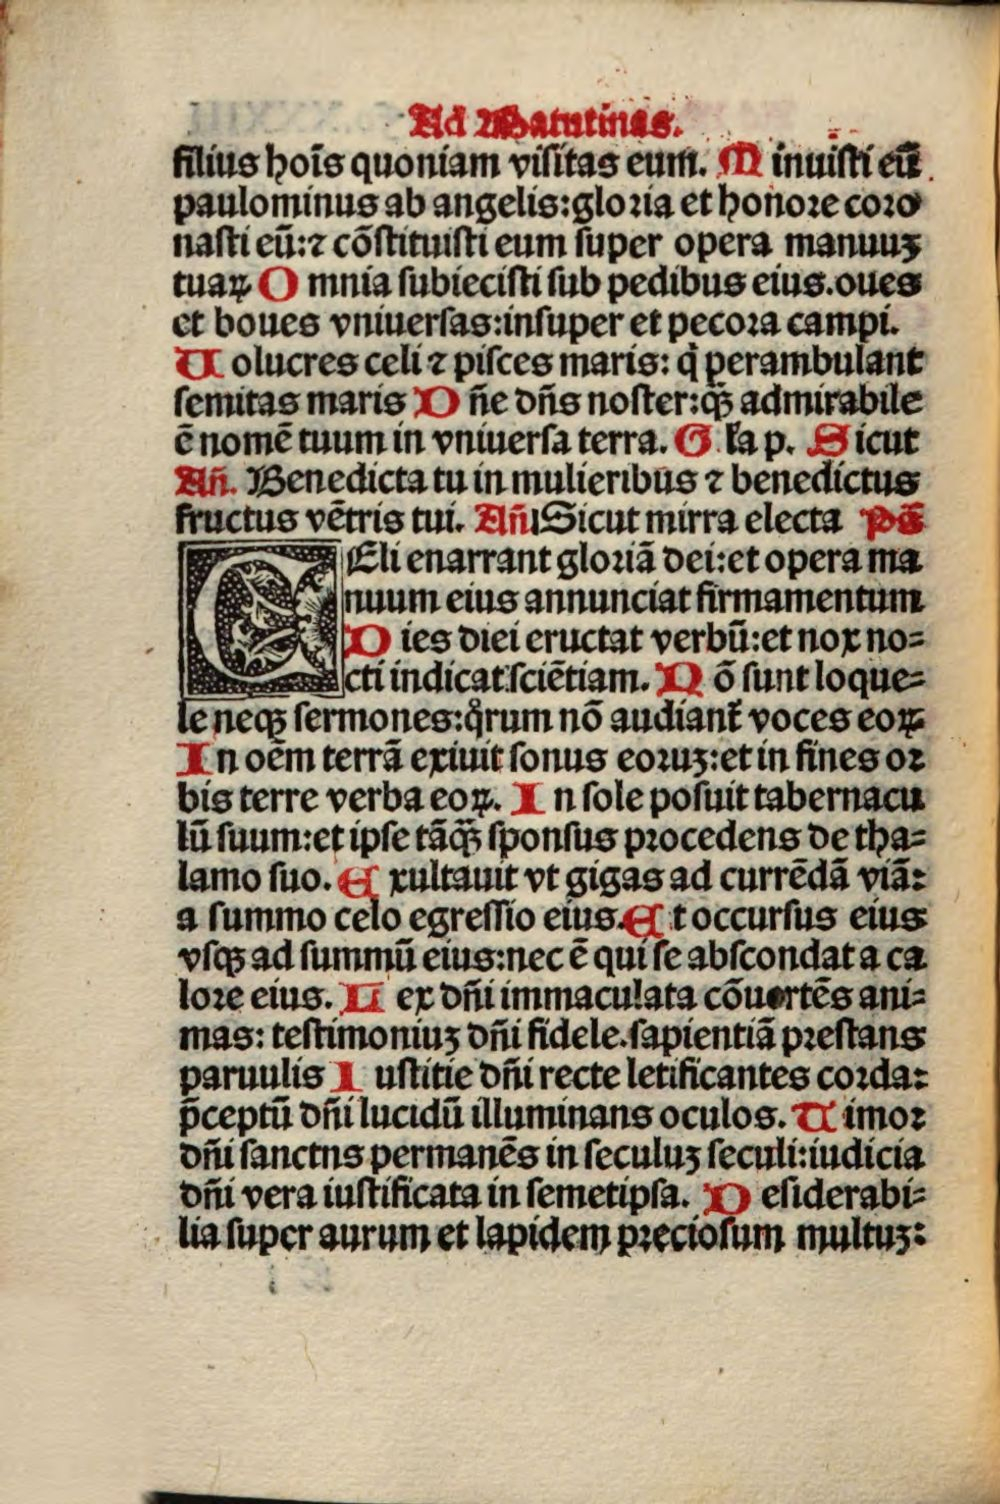 Ad Matutinas.
filius hoĩs quoniam visitas eum. Minuisti eũ
paulominus ab angelis:gloria et honore coro
nasti eũ:⁊ cõstituisti eum super opera manuuʒ
tuaꝝ Omnia subiecisti sub pedibus eius.oues
et boues vniuersas:insuper et pecora campi.
Uolucres celi ⁊ pisces maris: q̃ perambulant
semitas maris Dñe dñs noster:qȝ̃ admirabile
ẽ nomẽ tuum in vniuersa terra. Gl'a p. Sicut
Añ. Benedicta tu in mulieribus ⁊ benedictus
fructus vẽtris tui. Añ Sicut mirra electa Ps̃
CEli enarrant gloriã dei:et opera ma
nuum eius annunciat firmamentum
Dies diei eructat verbũ:et nox no=
cti indicat sciẽtiam. Nõ sunt loque=
le neqȝ sermones:qͦrum nõ audianť voces eoꝝ
In oẽm terrã exiuit sonus eoruʒ:et in fines or
bis terre verba eoꝝ. In sole posuit tabernacu
lũ suum:et ipse tãqȝ̃ sponsus procedens de tha=
lamo suo. Exultauit vt gigas ad currẽdã viã:
a summo celo egressio eius. Et occursus eius
vsqȝ ad summũ eius:nec ẽ qui se abscondat a ca
lore eius. Lex dñi immaculata cõuertẽs ani=
mas: testimoniuʒ dñi fidele.sapientiã prestans
paruulis Iustitie dñi recte letificantes corda:
p̃ceptũ dñi lucidũ illuminans oculos. Timor
dñi sanctns permanẽs in seculuʒ seculi:iudicia
dñi vera iustificata in semetipsa. Desiderabi=
lia super aurum et lapidem preciosum multuʒ: